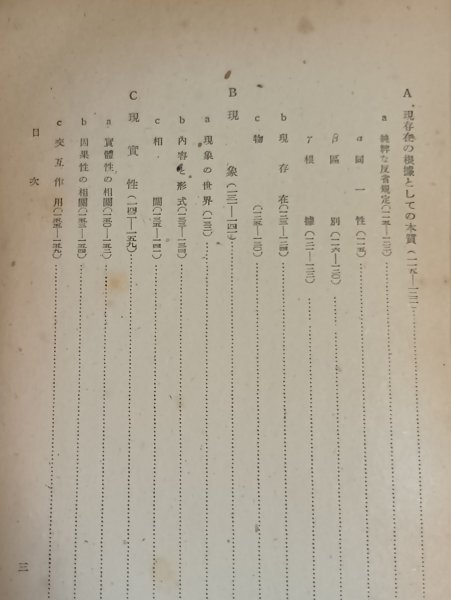 A 現存在の根據としての本質(一一五—一三一)
a 純粹な反省規定(一一五—一二二)
α 同一性(一一五)
β 區別(一一六—一二〇)
γ 根據(一二一—一二二)
b 現存在(一二三—一二四)
c 物(一二五—一三〇)
B 現象(一三一—一四一)
a 現象の世界(一三二)
b 內容と形式(一三三—一三四)
c 相關(一三五—一四一)
C 現實性(一四二—一五九)
a 實體性の相關(一五〇—一五一)
b 因果性の相關(一五三—一五四)
c 交互作用(一五五—一五九)
目次
三